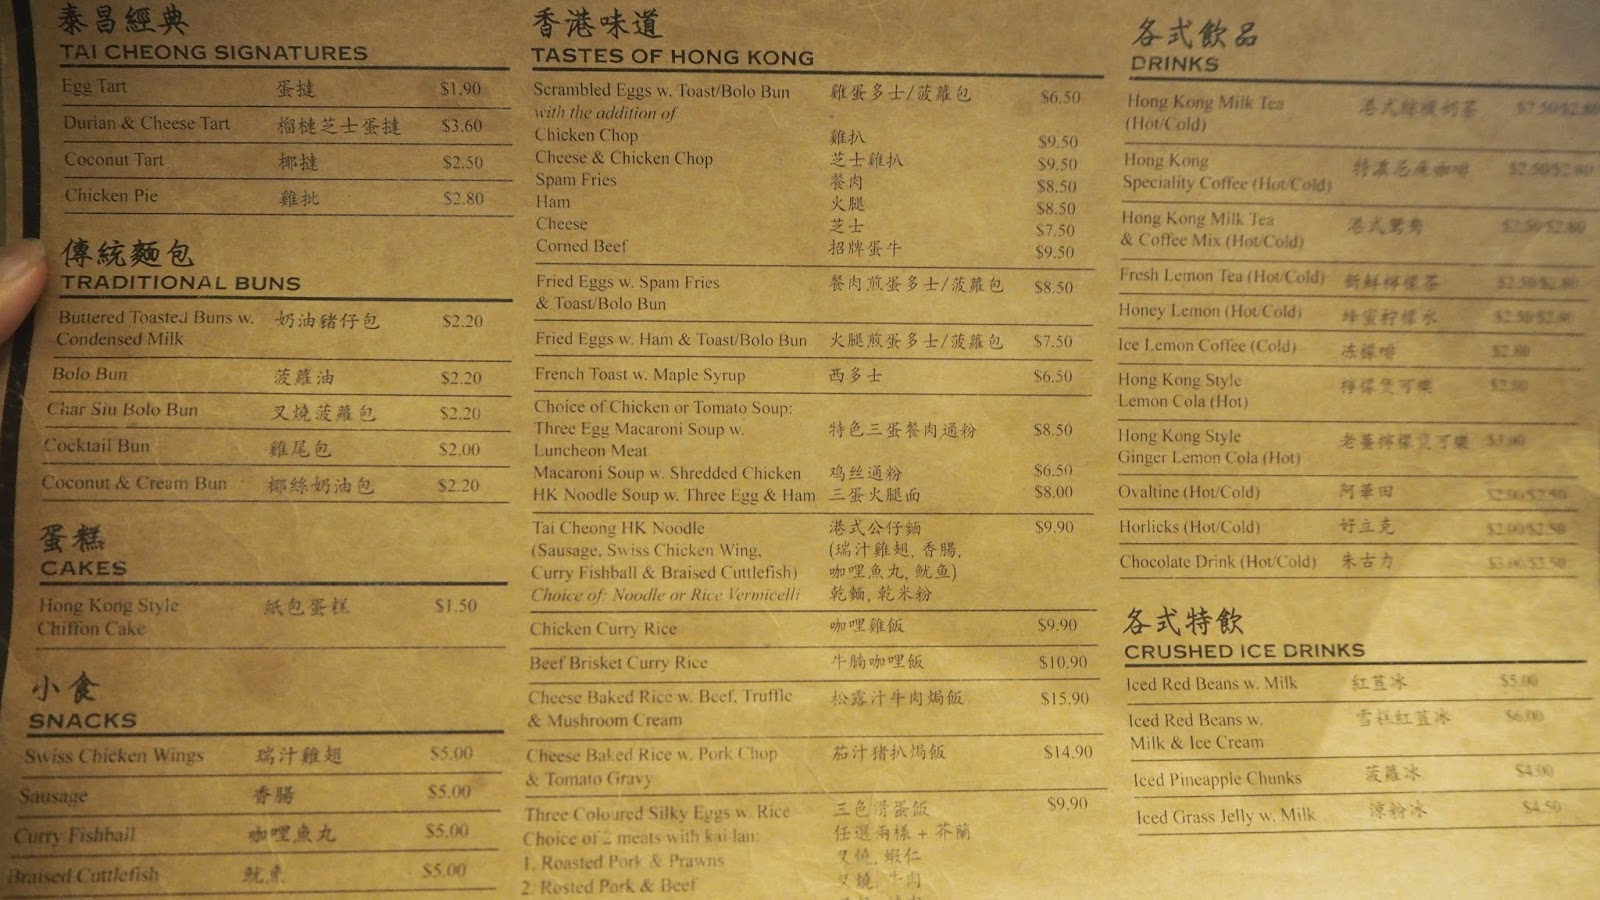 泰昌經典
TAI CHEONG SIGNATURES
Egg Tart 蛋撻 $1.90
Durian & Cheese Tart 榴槤芝士蛋撻 $3.60
Coconut Tart 椰撻 $2.50
Chicken Pie 雞批 $2.80
傳統麵包
TRADITIONAL BUNS
Buttered Toasted Buns w. 奶油豬仔包 $2.20
Condensed Milk
Bolo Bun 菠蘿油 $2.20
Char Siu Bolo Bun 叉燒菠蘿包 $2.20
Cocktail Bun 雞尾包 $2.00
Coconut & Cream Bun 椰絲奶油包 $2.20
蛋糕
CAKES
Hong Kong Style 紙包蛋糕 $1.50
Chiffon Cake
小食
SNACKS
Swiss Chicken Wings 瑞汁雞翅 $5.00
Sausage 香腸 $5.00
Curry Fishball 咖哩魚丸 $5.00
Braised Cuttlefish 魷魚 $5.00
香港味道
TASTES OF HONG KONG
Scrambled Eggs w. Toast/Bolo Bun 雞蛋多士/菠蘿包 $6.50
with the addition of
Chicken Chop 雞扒 $9.50
Cheese & Chicken Chop 芝士雞扒 $9.50
Spam Fries 餐肉 $8.50
Ham 火腿 $8.50
Cheese 芝士 $7.50
Corned Beef 招牌蛋牛 $9.50
Fried Eggs w. Spam Fries 餐肉煎蛋多士/菠蘿包 $8.50
& Toast/Bolo Bun
Fried Eggs w. Ham & Toast/Bolo Bun 火腿煎蛋多士/菠蘿包 $7.50
French Toast w. Maple Syrup 西多士 $6.50
Choice of Chicken or Tomato Soup:
Three Egg Macaroni Soup w. 特色三蛋餐肉通粉 $8.50
Luncheon Meat
Macaroni Soup w. Shredded Chicken 鸡丝通粉 $6.50
HK Noodle Soup w. Three Egg & Ham 三蛋火腿面 $8.00
Tai Cheong HK Noodle 港式公仔麵 $9.90
(Sausage, Swiss Chicken Wing, (瑞汁雞翅, 香腸,
Curry Fishball & Braised Cuttlefish) 咖哩魚丸, 魷鱼)
Choice of: Noodle or Rice Vermicelli 乾麵, 乾米粉
Chicken Curry Rice 咖哩雞飯 $9.90
Beef Brisket Curry Rice 牛腩咖哩飯 $10.90
Cheese Baked Rice w. Beef, Truffle 松露汁牛肉焗飯 $15.90
& Mushroom Cream
Cheese Baked Rice w. Pork Chop 茄汁猪扒焗飯 $14.90
& Tomato Gravy
Three Coloured Silky Eggs w. Rice 三色滑蛋飯 $9.90
Choice of 2 meats with kai lan: 任選兩樣 + 芥蘭
1. Roasted Pork & Prawns 叉燒, 蝦仁
2. Rosted Pork & Beef 叉燒, 牛肉
各式飲品
DRINKS
Hong Kong Milk Tea 港式絲襪奶茶 $2.50/$2.80
(Hot/Cold)
Hong Kong 特濃 咖啡 $2.50/$2.80
Speciality Coffee (Hot/Cold)
Hong Kong Milk Tea 港式鴛鴦 $2.50/$2.80
& Coffee Mix (Hot/Cold)
Fresh Lemon Tea (Hot/Cold) 新鮮檸檬茶 $2.50/$2.80
Honey Lemon (Hot/Cold) 蜂蜜柠檬水 $2.50/$2.80
Ice Lemon Coffee (Cold) 冻檬啡 $2.80
Hong Kong Style 檸檬煲可樂 $2.80
Lemon Cola (Hot)
Hong Kong Style 老薑檸檬煲可樂 $3.00
Ginger Lemon Cola (Hot)
Ovaltine (Hot/Cold) 阿華田 $2.00/$2.50
Horlicks (Hot/Cold) 好立克 $2.00/$2.50
Chocolate Drink (Hot/Cold) 朱古力 $3.00/$3.50
各式特飲
CRUSHED ICE DRINKS
Iced Red Beans w. Milk 紅荳冰 $5.00
Iced Red Beans w. 雪糕紅荳冰 $6.00
Milk & Ice Cream
Iced Pineapple Chunks 菠蘿冰 $4.00
Iced Grass Jelly w. Milk 涼粉冰 $4.50